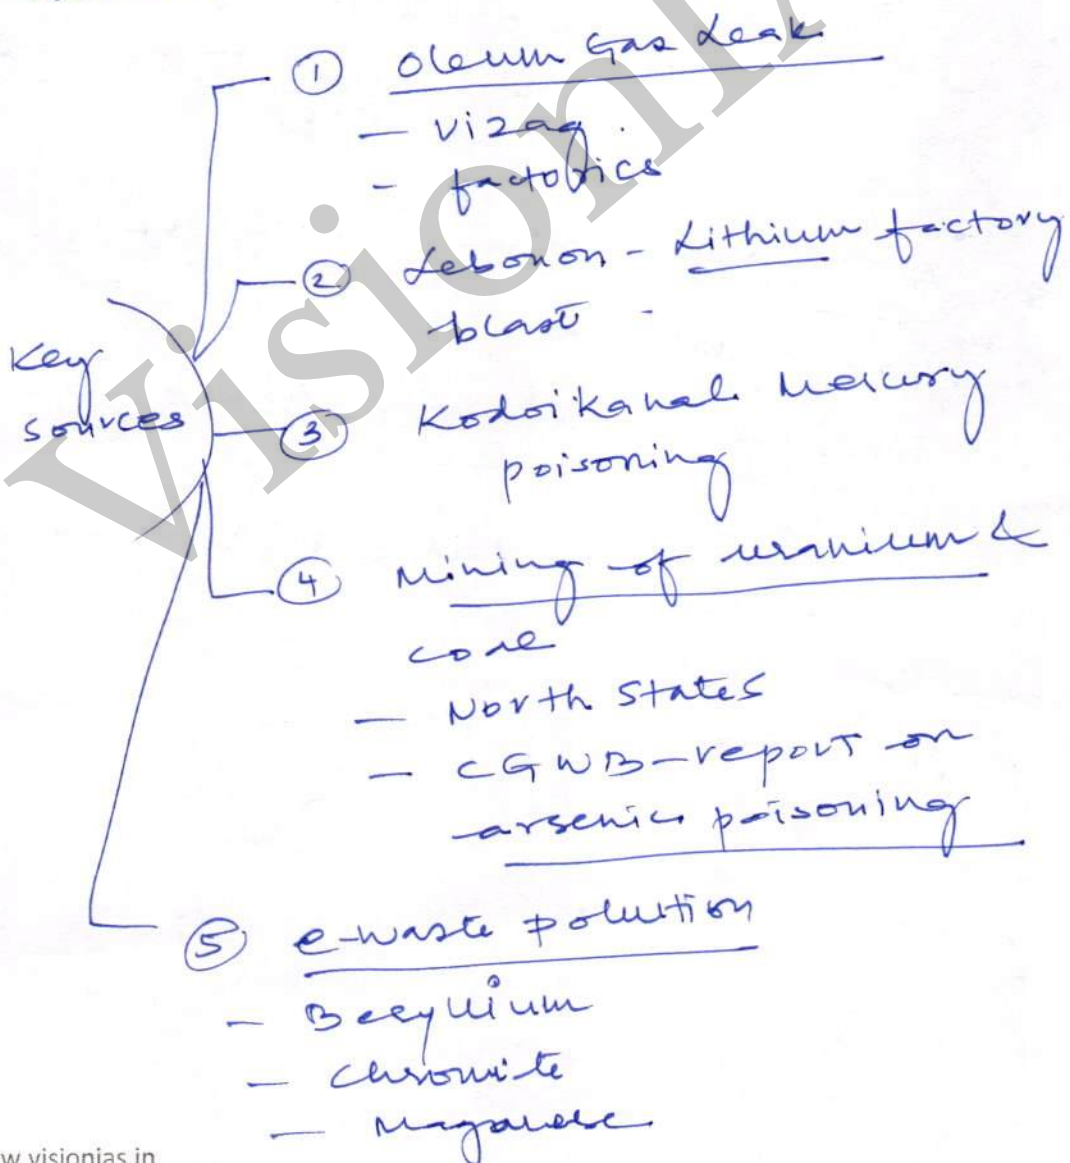 ① Oleum Gas Leak
- Vizag.
- factories
② Lebonon - Lithium factory
blast -
Key
sources
③ Kodoikanal Mercury
poisoning
④ Mining of uranium &
coal
- North States
- CGWB-report on
arsenic poisoning
⑤ e-waste polution
- Beryllium
- Chromite
- Maganese
w.visionias.in
Vision